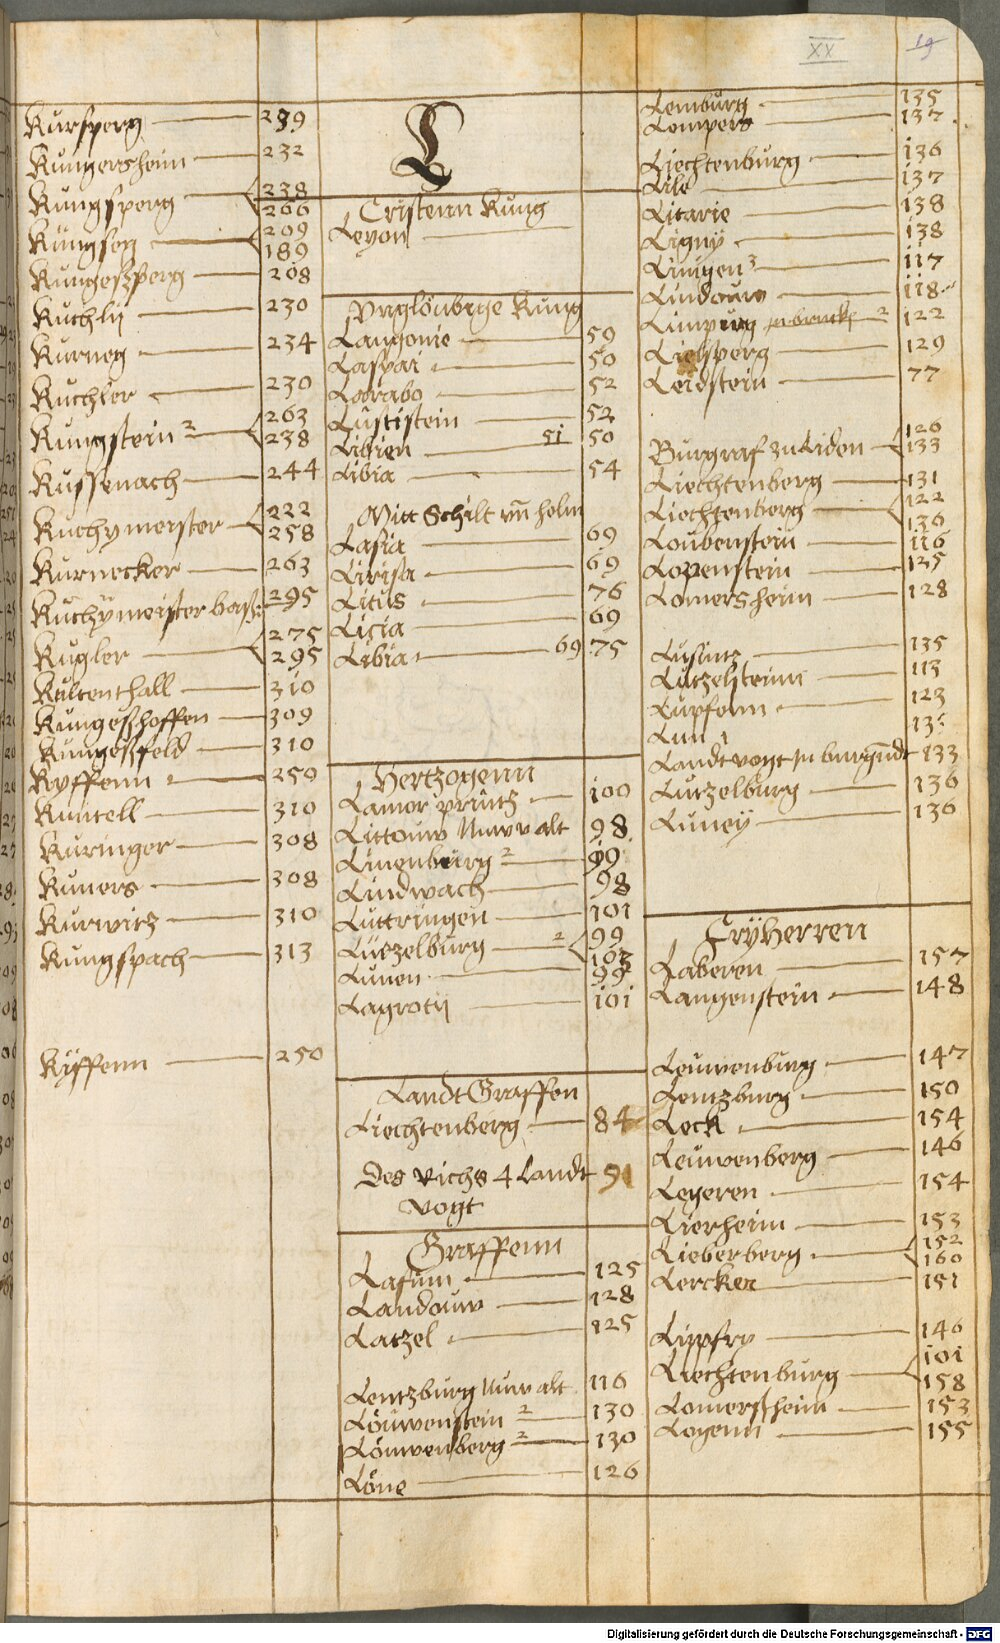 XX
19
Kursperg 239
Kungersheim 232
Kungsperg 238
266
Küngseg 209
189
Kungesßperg 208
Kuchly 230
Kurneg 234
Kuchler 230
Kungstein 2 263
238
Kussenach 244
Kuchymeyster 222
258
Kurnecker 263
Kuchymeister Baß: 295
Kugler 275
295
Kaltenthall 310
Kungeßhoffen 309
Kungeßfeld 310
Kyffenn 259
Kuntell 310
Kuringer 308
Kuners 308
Kurwitz 310
Kungspach 313
Kyffenn 250
L
Cristenn Kung
Leyon
Unglöubige Kung
Langonie 59
Laspai 50
Larabo 52
Lustistein 52
Lidien 51 50
Libia 54
Mitt Schilt vnd helm
Lasia 69
Lirisa 69
Litus 76
Licia 69
Libia 69 75
Hertzogenn
Lamor printz 100
Littouw Nuw v alt 98
Linenburg 2 99
Lindwach 98
Luttringen 101
Lutzelburg 2 99
103
Lunen 99
Lagrotij 101
Landt Graffen
Liechtenberg 84
Des Richs 4 Landt 91
vogt
Graffenn
Lafum 125
Landouw 128
Latzel 125
Lentzburg Nuw alt 116
Löuwenstein 2 130
Löuwenberg 2 130
Löne 126
Lemburg 135
Lompers 137
Liechtenburg 136
Lile 137
Litarie 138
Ligny 138
Liningen 3 117
Lindouw 118
Limpurg 2 122
Lielsperg 129
Leidstein 77
Burgraf zu Liden 126
133
Liechtenberg 131
Liechtenberg 122
136
Loubenstein 116
Lozenstein 125
Lomersheim 128
Lusintz 135
Lutzelsteinn 113
Lupfenn 123
Lun
Landtvogt in burgundt 133
Lutzelburg 136
Luney 136
Fryherren
Laberen 157
Langenstein 148
Leuwenburg 147
Lentzburg 150
Leck 154
Leuwenberg 146
Legeren 154
Lierheim 153
Lieberberg 152
160
Lercker 151
Lupfry 146
Liechtenburg 101
158
Lomersheim 153
Logenn 155
Digitalisierung gefördert durch die Deutsche Forschungsgemeinschaft - DFG